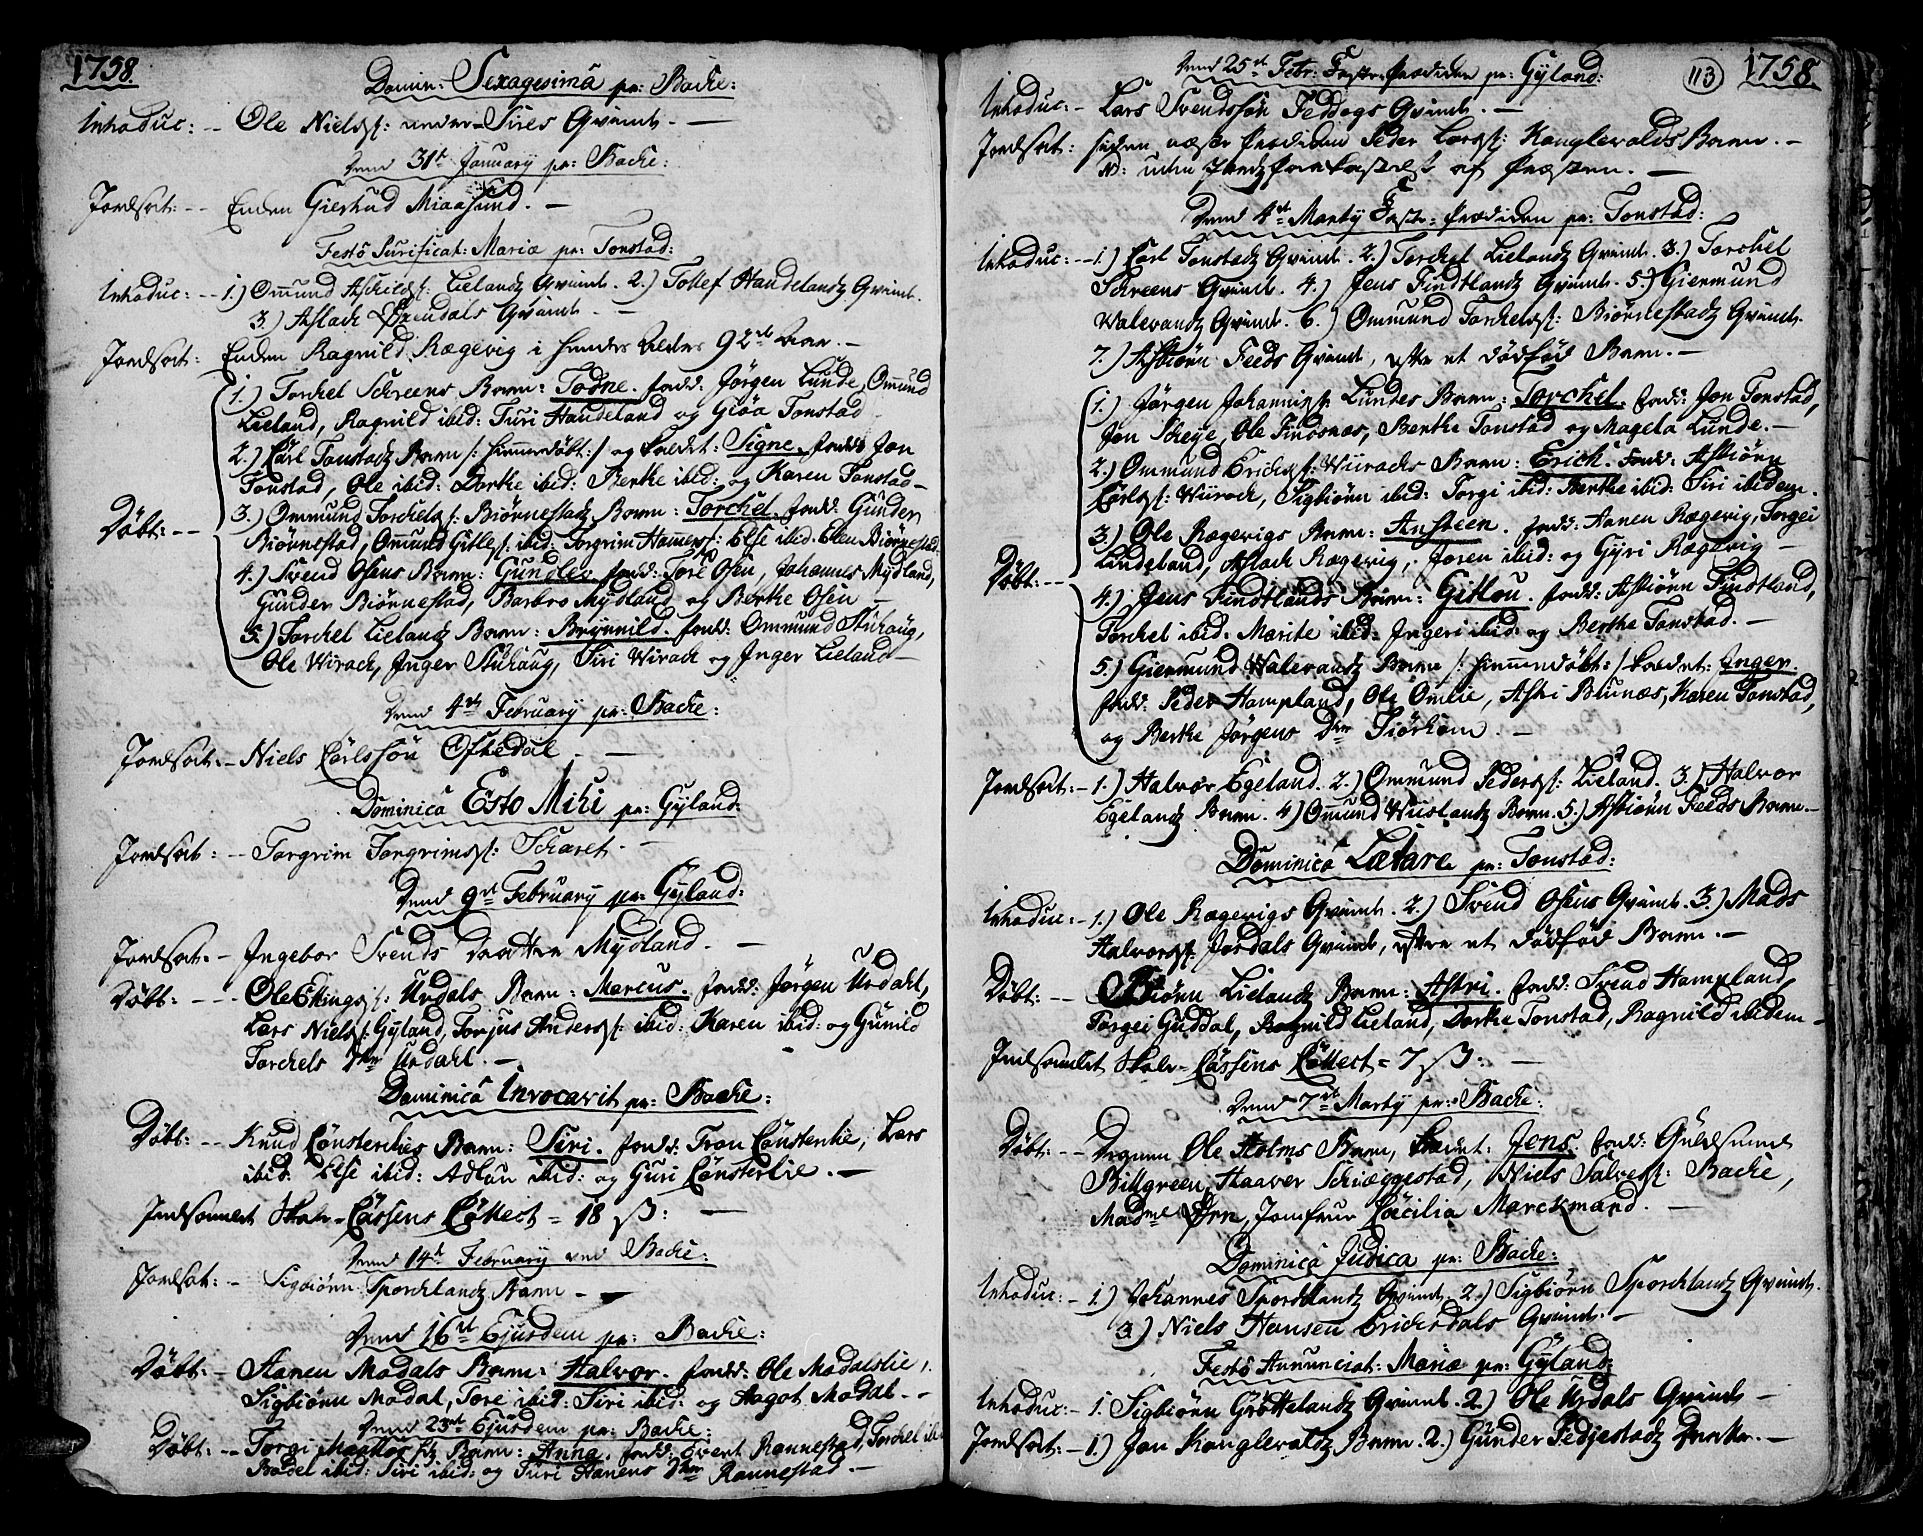 1758.
Domin: Sexagesima pr: Backe:
Introduc: -- Ole Nielsss: under Sires Qvinde. —
Dend 31te January pr: Backe:
Jordsat: -- Enken Giertrud Miaasund. —
Festô Purificat: Mariæ pr: Tonstad:
Introduc: -- 1.) Omund Aschilds: Lielandz Qvinde. 2.) Tollef Haudelandz Qvinde.
3.) Aslach Qvindals Qvinde. —
Jordsat: Enken Ragnild Rægevig i hendes Alder 92de Aar. —
1.) Torchel Schreens Barn: Todne. fadd: Jørgen Lunde, Omund
Lieland, Ragnild ibid: Turi Haudeland og Giøa Tonstad
2.) Carl Tonstadz Barn /: hiemmedøbt :/ og kaldet: Signe. fadd: Jon
Tonstad, Ole ibid: Dorthe ibid: Berthe ibid: og Karen Tonstad —
Døbt: -- 3.) Ommund Torchels: Biørnestadz Barn: Torchel. fadd: Gunder
Biørnestad, Omund Gitles: ibid: Torgrim Hamers: Else ibid: Elen Biørnestad.
4.) Svend Osens Barn: Gundlev. fadd: Tore Osen, Johannes Mydland,
Gunder Biørnestad, Barbro Mydland og Berthe Osen —
5.) Torchel Lielandz Barn: Brynnild. fadd: Ommund Stuhaug,
Ole Wirach, Inger Stuhaug, Siri Wirach og Inger Lieland —
Dend 4de February pr: Backe:
Jordsat: - Niels Carlssön Oftedal. —
Dominica Esto Mihi pr: Gyland:
Jordsat: -- Torgrim Torgrims: Scharet. —
Dend 9de February pr: Gyland:
Jordsat: - Ingebor Svends Daatter Mydland. —
Døbt: --- Ole Ellings: Urdals Barn: Marcus. fadd: Jørgen Urdahl,
Lars Niels: Gyland, Torjus Anders: ibid: Karen ibid: og Gunild
Torchels Dtr Urdahl. —
Dominicâ Invocavit pr: Backe:
Døbt: -- Knud Cønsterlies Barn: Siri. fadd: Tron Cønsterlie, Lars
ibid: Else ibid: Adlau ibid: og Guri Cønsterlie. —
Indsamlet Skole-Cassens Collect = 18 ß: —
Dend 14de February ved Backe:
Jordsat: - Sigbiørn Sporchlandz Barn —
Dend 16de Ejusdem pr: Backe:
Døbt: - Aanen Modals Barn: Halvor. fadd: Ole Modalslie,
Sigbiørn Modal, Tore ibid: Siri ibid: og Aagot Modal. —
Dend 23de Ejusdem pr: Backe:
Døbt: -- Torgi Barn: Anna. fadd: Evert Rannestad, Torchel ibid
Bodel ibid: Siri ibid: og Turi Aanens Dtr Rannestad. —
Dend 25de Febr: Faste-Prædiken pr: Gyland:
113
1758.
Introduc: - Lars Svendssön Feddogs Qvinde. —
Jordsat: siden næste Prædiken Peder Lars: Konglevolds Barn. —
NB: uden Jords Paakastelse af Præsten. —
Dend 4de Marty Faste-Prædiken pr: Tonstad:
Introduc: -- 1.) Carl Tonstadz Qvinde. 2.) Torchel Lielandz Qvinde. 3.) Torchel
Schreens Qvinde. 4.) Jens Findtlandz Qvinde. 5.) Giermund
Walevandz Qvinde. 6.) Ommund Torchels: Biørnestadz Qvinde.
7.) Asbiørn Feeds Qvinde, efter et dødfød Barn. —
1.) Jørgen Johannis: Lundes Barn: Torchel. fadd: Jon Tonstad,
Jon Scheye, Ole Finosnæs, Berthe Tonstad og Magela Lunde. —
2.) Ommund Erichs: Wirachs Barn: Erich. fadd: Asbiörn
Carls: Wirach, Sigbiörn ibid: Torgi ibid: Berthe ibid: Siri ibidem.
3.) Ole Rægevigs Barn: Ansteen. fadd: Aanen Rægevig, Torgei
Lindeland, Aslach Rægevig, Joren ibid: og Gyri Rægevig —
Døbt: -- 4.) Jens Findtlands Barn: Gitlou. fadd: Asbiörn Findtland,
Torchel ibid: Marite ibid: Ingeri ibid: og Berthe Tonstad. —
5.) Giermund Walevandz Barn /: hiemmedøbt :/ kaldet: Inger.
fadd: Peder Hampland, Ole Omlie, Astri Blunæs, Karen Tonstad,
og Berthe Jørgens Dtr Tiörhom. —
Jordsat: - 1.) Halvor Egeland. 2.) Ommund Peders: Lieland. 3.) Halvor
Egelandz Barn. 4.) Omund Huslandz Barn. 5.) Asbiörn Feeds Barn. —
Dominicâ Lætare pr: Tonstad:
Introduc: - 1.) Ole Rægevigs Qvinde. 2.) Svend Osens Qvinde. 3.) Mads
Halvors: Jordals Qvinde, efter et dødfød Barn. —
Døbt: -- Biörn Lielandz Barn: Astri. fadd: Svend Hampland,
Torgei Guddal, Ragnild Lieland, Dorthe Tonstad, Ragnild ibidem —
Indsamlet Skole-Cassens Collect = 7 ß: —
Dend 7de Marty pr: Backe:
Døbt: -- Degnen Ole Holms Barn, kaldet: Jens. fadd: Guldsmed
Billgreen, Haaver Schiæggestad, Niels Salves: Backe,
Madme Ørn, Jomfrue Cæcilia Marckmand. —
Dominicâ Judica pr: Backe:
Introduc: - 1.) Johannes Sporchlandz Qvinde. 2.) Sigbiörn Sporchlandz Qvinde.
3.) Niels Hansen Erichsdals Qvinde. —
Festô Annunciat: Mariæ pr: Gyland:
Introduc: - 1. Sigbiörn Gröttelandz Qvinde. 2.) Ole Urdals Qvinde —
Jordsat: - 1.) Jon Konglevoltz Barn. 2.) Gunder Fedjestadz Enke. —